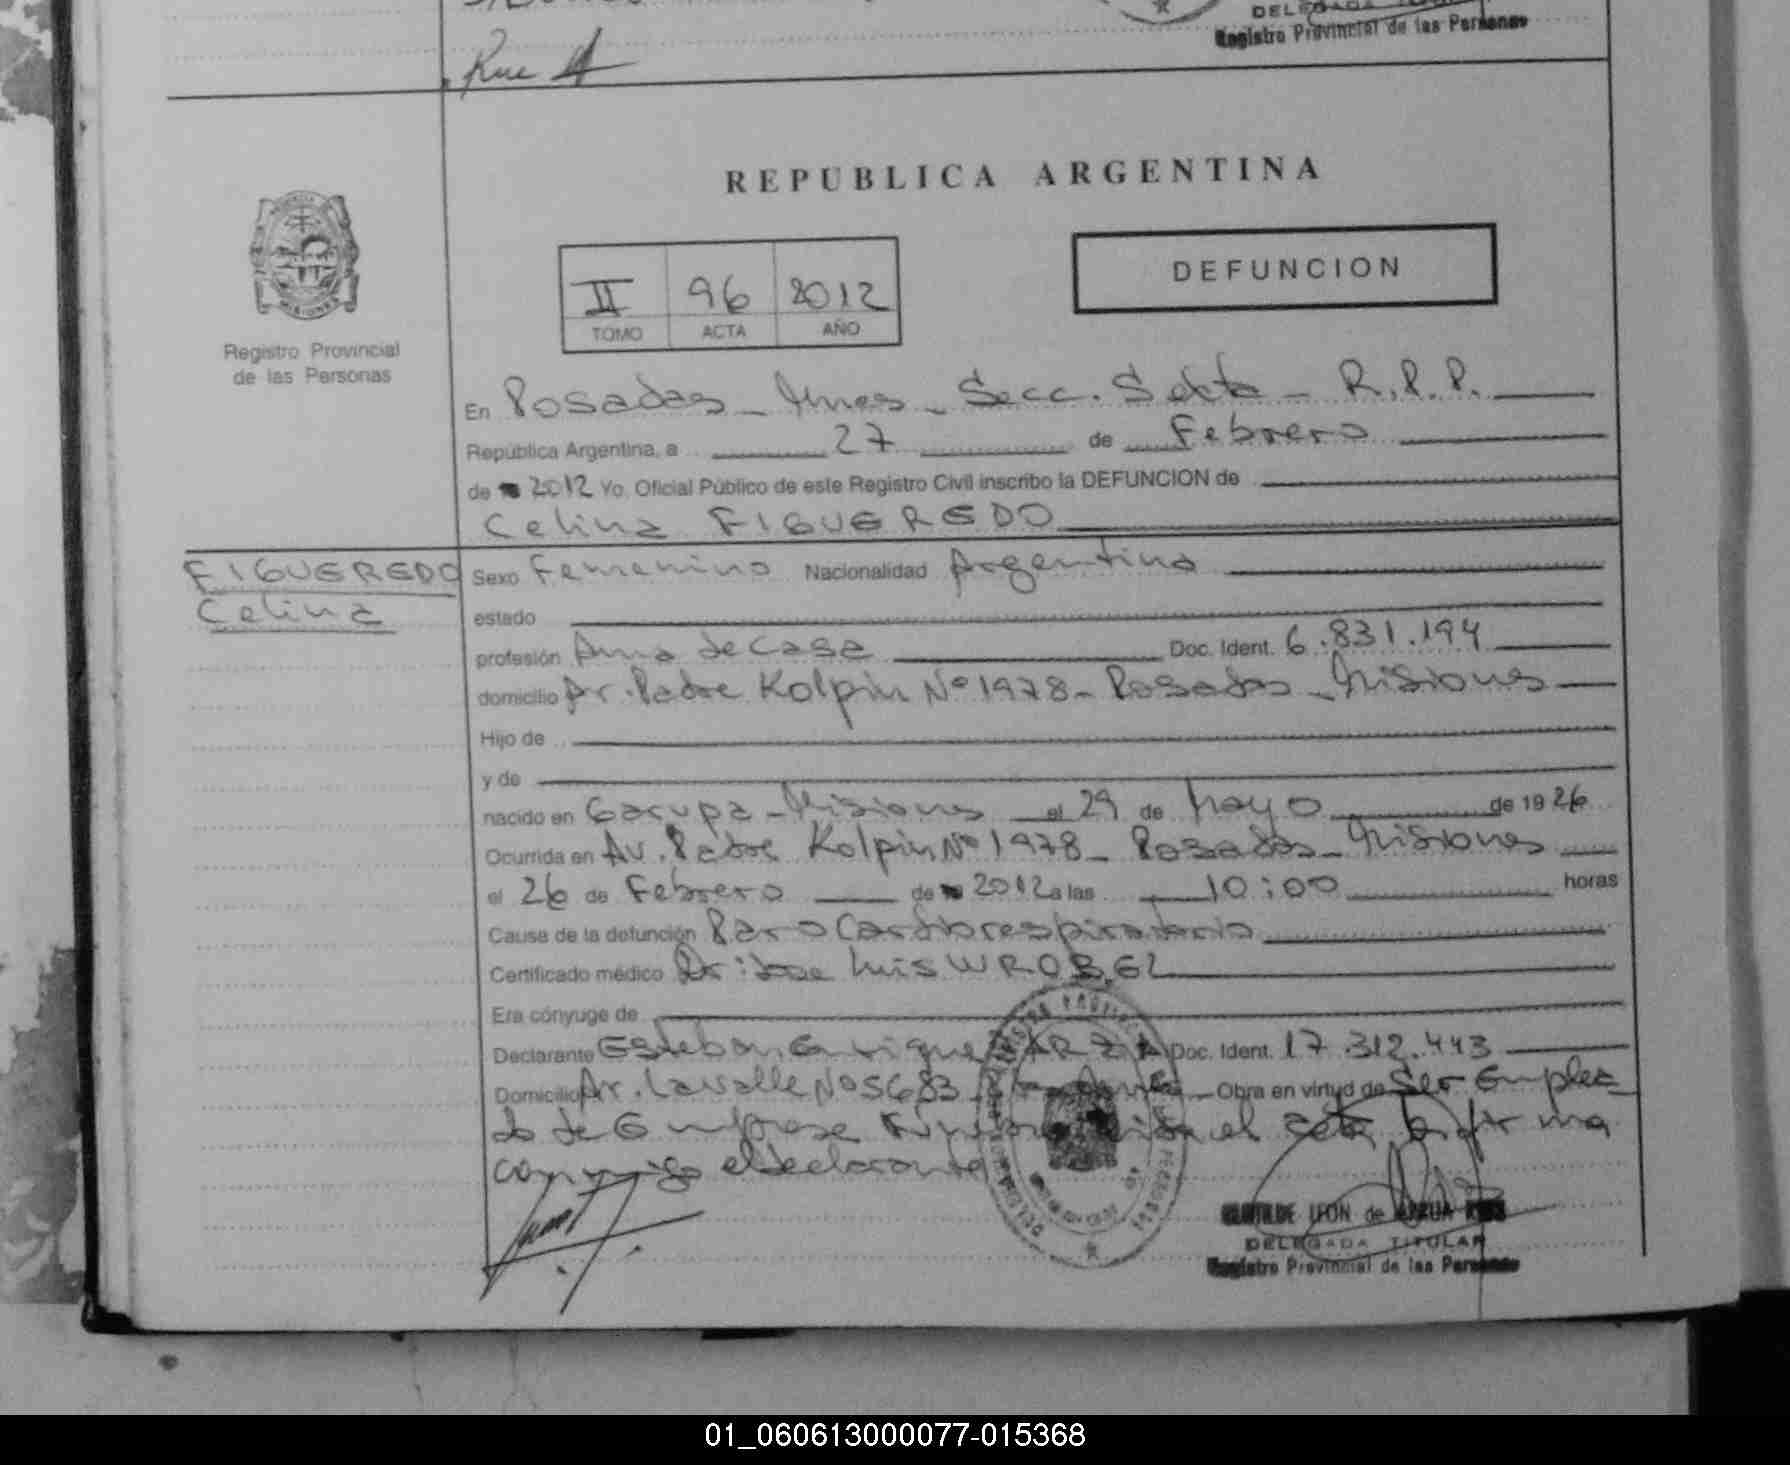 DELEGADA
Registro Provincial de las Personas
REPUBLICA ARGENTINA
II 96 2012
TOMO ACTA AÑO
DEFUNCION
Registro Provincial
de las Personas
En Posadas - Mnes - Secc. Sexta - R.P.P.
República Argentina, a 27 de Febrero
de 2012 Yo, Oficial Público de este Registro Civil inscribo la DEFUNCION de
Celina FIGUEREDO
FIGUEREDO
Celina
Sexo Femenino Nacionalidad Argentina
estado
profesión Ama de Casa Doc. Ident. 6.831.194
domicilio Av. Padre Kolpin Nº 1978 - Posadas - Misiones
Hijo de
y de
nacido en Garupa - Misiones el 29 de Mayo de 1926
Ocurrida en Av. Padre Kolpin Nº 1978 - Posadas - Misiones
el 26 de Febrero de 2012 a las 10:00 horas
Causa de la defunción Paro Cardiorespiratorio
Certificado médico Dr: Jose Luis WROBEL
Era cónyuge de
Declarante Esteban Enrique Doc. Ident. 17.312.443
Domicilio Av. Lavalle Nº 5683 Obra en virtud de Ser Emplea-
do de Empresa el acta la firma
conmigo el declarante
LEON de
DELEGADA TITULAR
Registro Provincial de las Personas
01_060613000077-015368